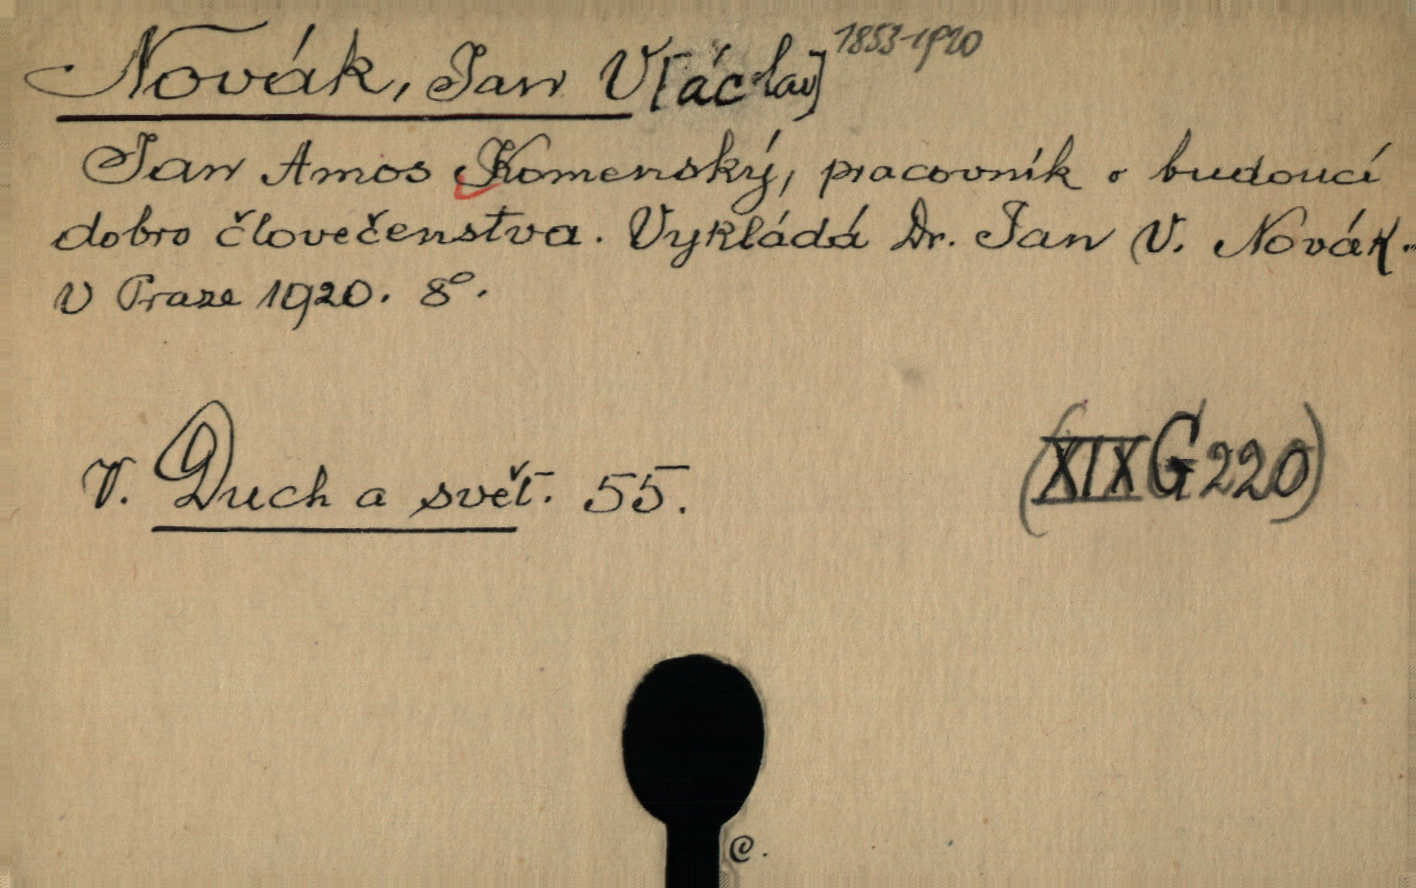 Novák, Jan V[áclav] 1853-1920
Jan Amos Komenský, pracovník o budoucí
dobro člověčenstva. Vykládá Dr. Jan V. Novák.
V Praze 1920. 8°.
V. Duch a svět. 55.
(XIX G 220)
C.